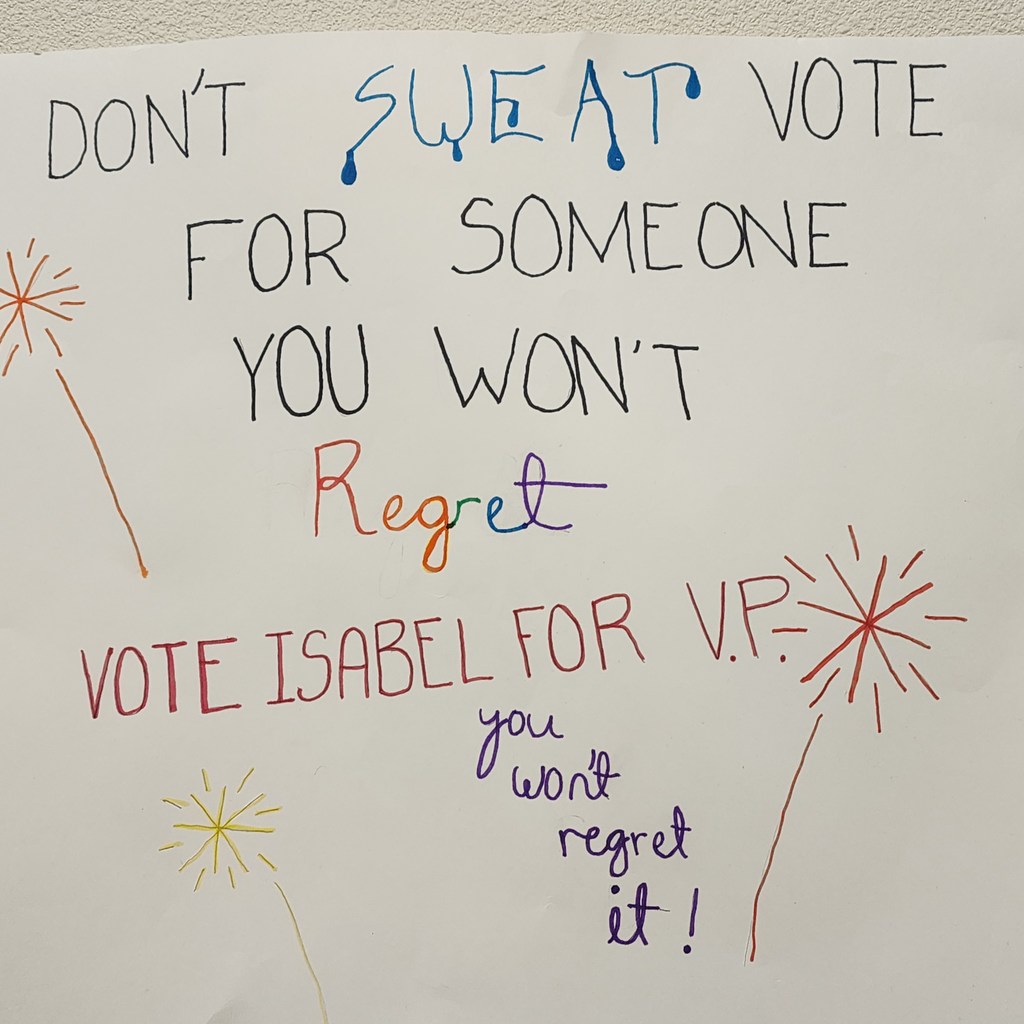 DON'T SWEAT VOTE
FOR SOMEONE
YOU WON'T
Regret
VOTE ISABEL FOR V.P.
you
won't
regret
it!